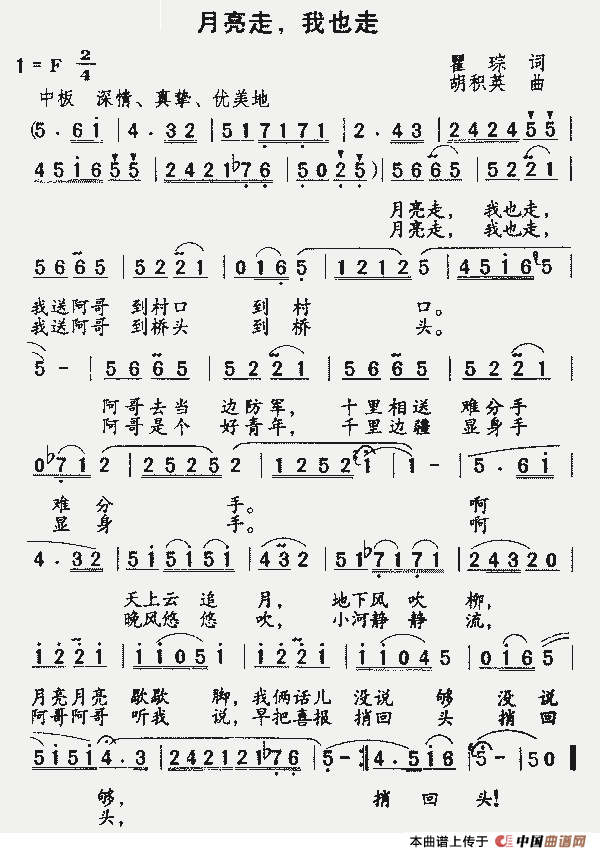 月亮走，我也走
1 = F 2/4
瞿琮 词
胡积英 曲
中板 深情、真挚、优美地
(5 . 6 i | 4 . 3 2 | 5 1 7 1 7 1 | 2 . 4 3 | 2 4 2 4 5 5 |
4 5 i 6 5 5 | 2 4 2 1 ♭7 6 | 5 0 2 5 ) | 5 6 6 5 | 5 2 2 1 |
月亮走， 我也走，
月亮走， 我也走，
5 6 6 5 | 5 2 2 1 | 0 1 6 5 | 1 2 1 2 | 4 5 i 6 5 |
我送阿哥 到村口 到 村 口。
我送阿哥 到桥头 到 桥 头。
5 - | 5 6 6 5 | 5 2 2 1 | 5 6 6 5 | 5 2 2 1 |
阿哥去当 边防军， 十里相送 难分手
阿哥是个 好青年， 千里边疆 显身手
0 ♭7 1 2 | 2 5 2 5 2 | 1 2 5 2 i | i - | 5 . 6 i |
难 分 手。 啊
显 身 手。 啊
4 . 3 2 | 5 i 5 i 5 i | 4 3 2 | 5 1 ♭7 1 7 1 | 2 4 3 2 0 |
天上云 追 月， 地下风 吹 柳，
晚风悠 悠 吹， 小河静 静 流，
i 2 2 i | i i 0 5 i | i 2 2 i | i i 0 4 5 | 0 i 6 5 |
月亮月亮 歇歇 脚，我俩话儿 没说 够 没 说
阿哥阿哥 听我 说，早把喜报 捎回 头 捎 回
5 i 5 i i 4 . 3 | 2 4 2 1 2 1 ♭7 6 | 5 - :| 4 . 5 i 6 | 5 - | 5 0 ‖
够， 捎 回 头！
头，
本曲谱上传于 中国曲谱网